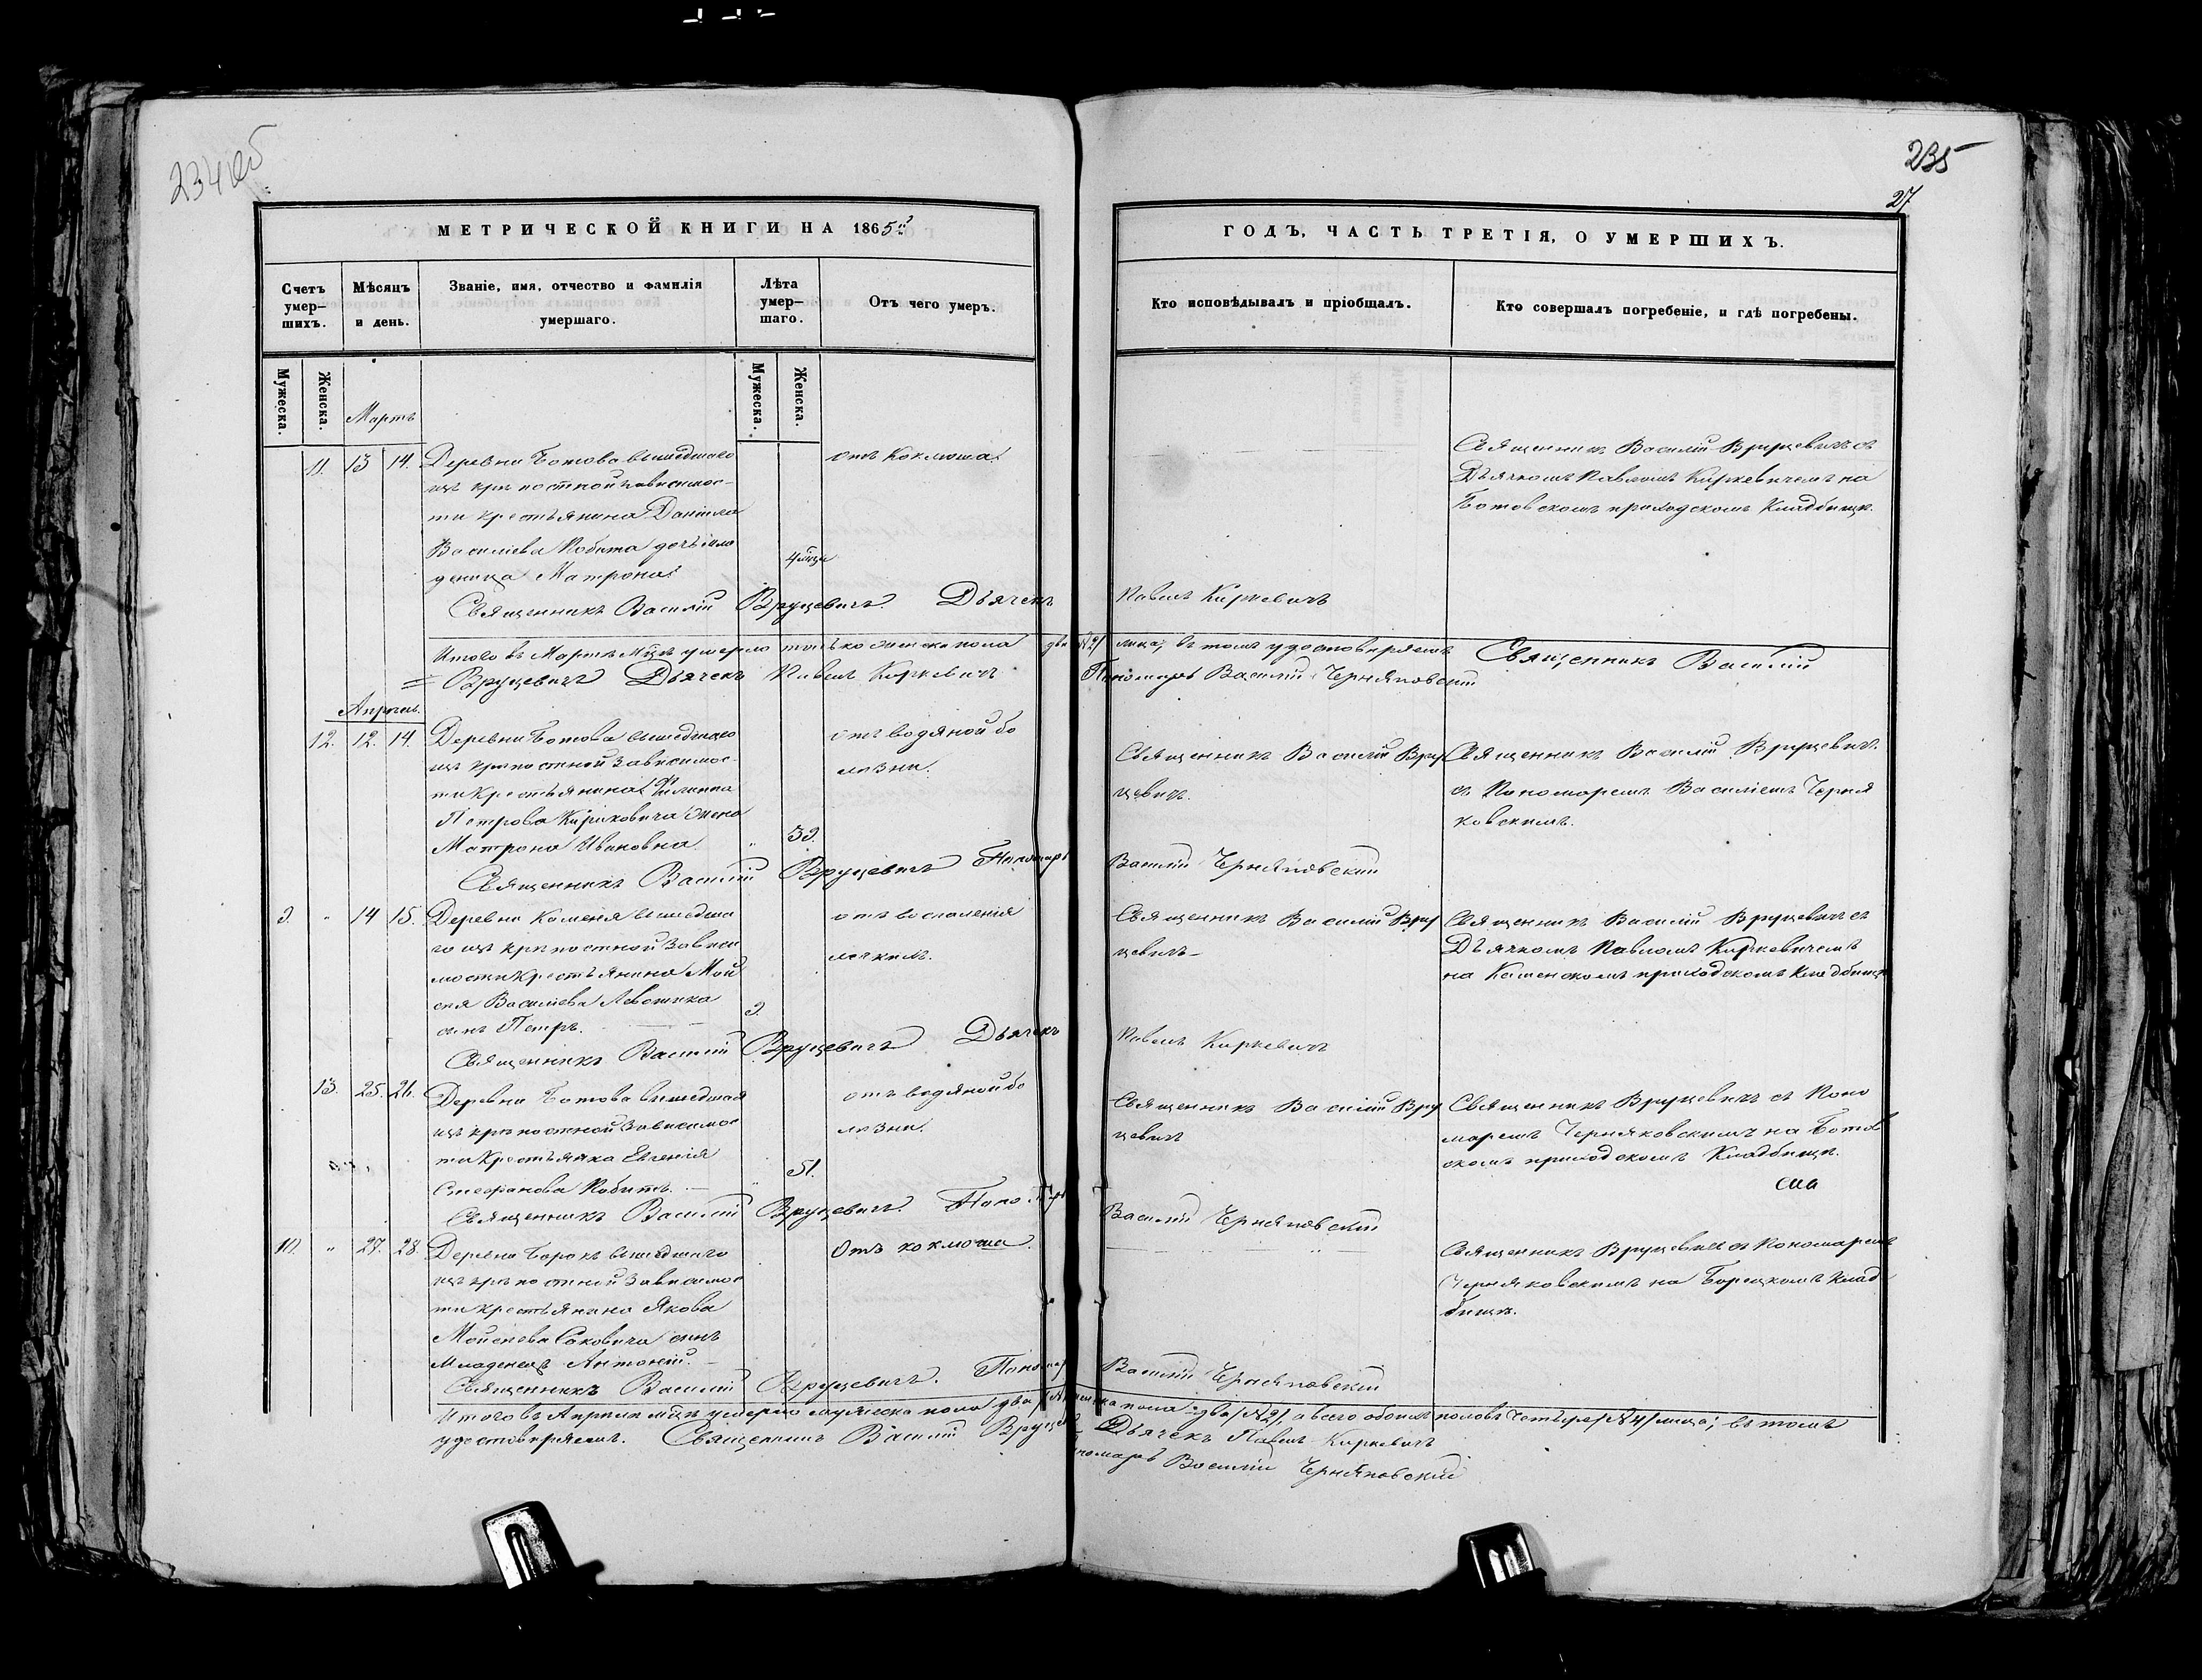 234 об
235
27
МЕТРИЧЕСКОЙ КНИГИ НА 1865й
ГОДЪ, ЧАСТЬ ТРЕТІЯ, О УМЕРШИХЪ.
Счетъ умер-шихъ.
Мѣсяцъ и день.
Званіе, имя, отчество и фамилія умершаго.
Лѣта умер-шаго.
Отъ чего умеръ.
Кто исповѣдывалъ и пріобщалъ.
Кто совершалъ погребеніе, и гдѣ погребены.
Мужеска.
Женска.
Мужеска.
Женска.
Мартъ
11. 13 14. Деревни Ботова вышедшаго
изъ крѣпостной зависимос-
ти крестьянина Даніила
Василіева Кобита дочь мла
деница Матрона.
4 мѣца
отъ коклюша.
Священникъ Василій Вруцевичъ съ
Дьячкомъ Павломъ Киркевичемъ на
Ботовскомъ приходскомъ кладбищѣ.
Священникъ Василій Вруцевичъ. Дьячекъ Павелъ Киркевичъ
Итого въ Мартѣ мѣцѣ умерло только женска пола два /№2/ лица; въ томъ удостовѣряемъ Священникъ Василій
= Вруцевичъ Дьячекъ Павелъ Киркевичъ Пономарь Василій Черняковскій
Апрель.
12. 12. 14. Деревни Ботова вышедшаго
изъ крѣпостной зависимос-
ти крестьянина Филиппа
Петрова Кириковича жена
Матрона Ивановна.
39.
отъ водяной бо
лѣзни.
Священникъ Василій Вру
цевичъ.
Священникъ Василій Вруцевичъ
съ Пономаремъ Василіемъ Черня
ковскимъ.
Священникъ Василій Вруцевичъ Пономарь Василій Черняковскій
9. " 14 15. Деревни Каменя вышедша
го изъ крѣпостной зависи
мости крестьянина Мои
сея Василіева Левоника
сынъ Петръ.
9.
отъ воспаленія
легкихъ.
Священникъ Василій Вру
цевичъ-
Священникъ Василій Вруцевичъ съ
Дьячкомъ Павломъ Киркевичемъ
на Каменскомъ приходскомъ кладбищѣ
Священникъ Василій Вруцевичъ Дьячекъ Павелъ Киркевичъ
13. 25. 26. Деревни Ботова вышедшая
изъ крѣпостной зависимос
ти крестьянка Евгенія
Стефанова Кобитъ.
51.
отъ водяной бо
лѣзни.
Священникъ Василій Вру
цевичъ
Священникъ Вруцевичъ съ Поно
маремъ Черняковскимъ на Ботов
скомъ приходскомъ кладбищѣ.
Священникъ Василій Вруцевичъ. Пономарь Василій Черняковскій
10. " 27. 28. Деревни Борокъ вышедшаго
изъ крѣпостной зависимос
ти крестьянина Якова
Моисеева Саковича сынъ
Младенецъ Антоній.
Отъ коклюша.
Священникъ Вруцевичъ съ Пономаремъ
Черняковскимъ на Борецкомъ клад
бищѣ.
Священникъ Василій Вруцевичъ. Пономарь Василій Черняковскій
Итого въ Апрелѣ мѣцѣ умерло мужеска пола два женска пола два /№2/, а всего обоихъ половъ четыре /№4/ лица; въ томъ
удостовѣряемъ. Священникъ Василій Вруцевичъ Дьячекъ Павелъ Киркевичъ
Пономарь Василій Черняковскій